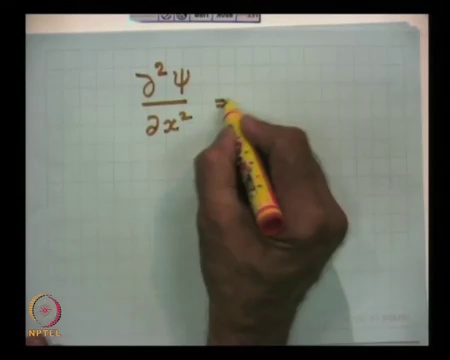 ∂²ψ
∂x² =
NPTEL